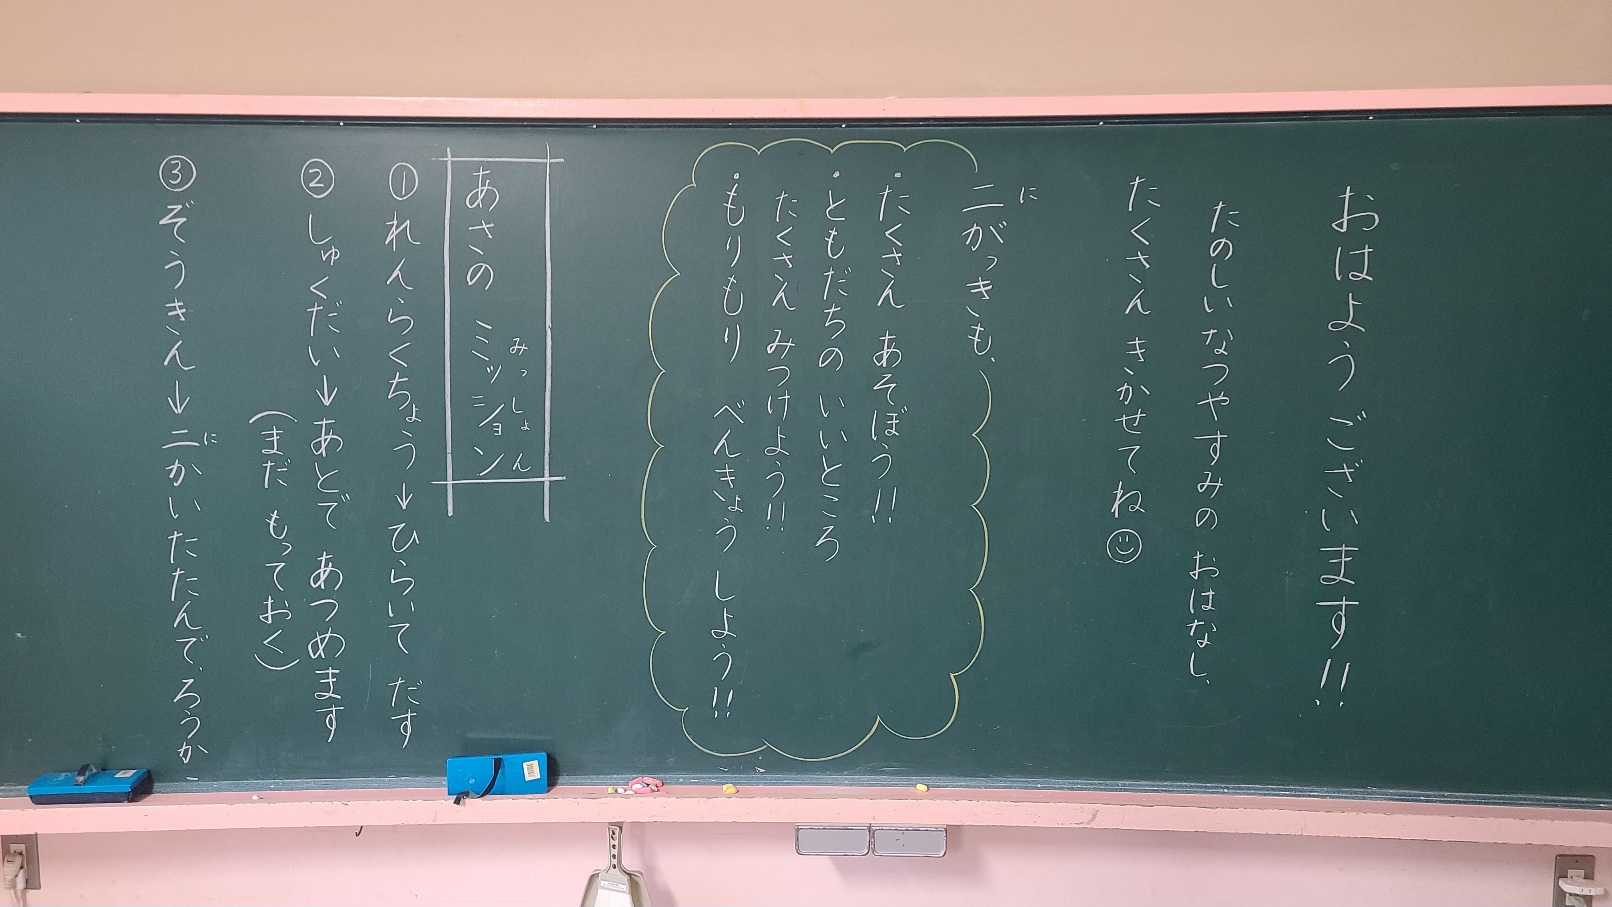 おはよう ございます!!
たのしい なつやすみの おはなし、
たくさん きかせてね
二がっきも、
に
・たくさん あそぼう!!
・ともだちの いいところ
たくさん みつけよう!!
・もりもり べんきょう しよう!!
あさの ミッション
みっしょん
①れんらくちょう→ひらいて だす
②しゅくだい→あとで あつめます
(まだ もっておく)
③ぞうきん→二かいたたんで、ろうかへ
に